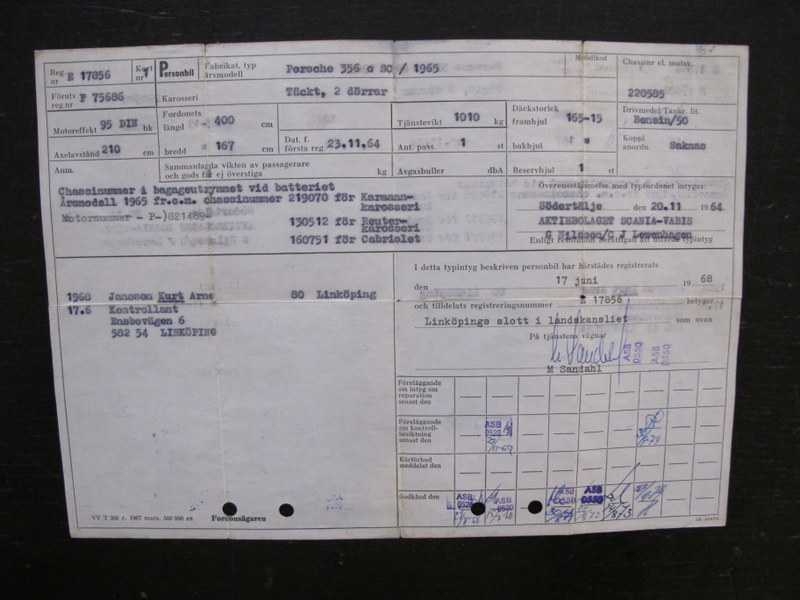 Reg. nr E 17856
Kort nr 1
Personbil
Fabrikat, typ årsmodell Porsche 356 c 80 / 1965
Modellkod
Chassinr el. motsv. 220585
Förutv. reg.nr P 75686
Karosseri Täckt, 2 dörrar
Motoreffekt 95 DIN hk
Fordonets längd 400 cm
Tjänstevikt 1010 kg
Däckstorlek framhjul 165-15
Drivmedel/Tankr. lit. Bensin/50
Axelavstånd 210 cm
bredd 167 cm
Dat. f. första reg. 23.11.64
Ant. pass. 1 st
bakhjul "
Koppl. anordn. Saknas
Anm.
Sammanlagda vikten av passagerare och gods får ej överstiga kg
Avgasbuller dbA
Reservhjul 1 st
Chassinummer i bagageutrymmet vid batteriet
Årsmodell 1965 fr.o.m. chassinummer 219070 för Karmann-
karosseri
Motornummer - P-)821489-
130512 för Reuter-
karosseri
160751 för Cabriolet
Överensstämmelse med typfordonet intygas:
Södertälje den 20.11 1964
AKTIEBOLAGET SCANIA-VABIS
G Nilsson/C J Lewenhagen
Enligt resolution berättigad att utfärda typintyg
1968 Jansson Kurt Arne 80 Linköping
17.6 Kontrollant
Ensbovägen 6
582 54 LINKÖPING
I detta typintyg beskriven personbil har härstädes registrerats
den 17 juni 1968
och tilldelats registreringsnummer E 17856 betygar
Linköpings slott i landskansliet som ovan
På tjänstens vägnar
M Sandahl
ASB 0550
ASB 0550
Föreläggande
om intyg om
reparation
senast den
Föreläggande
om kontroll-
besiktning
senast den
ASB
Körförbud
meddelat den
Godkänd den
ASB 0520
ASB 0520
ASB 0520
ASB 0550
Fordonsägaren